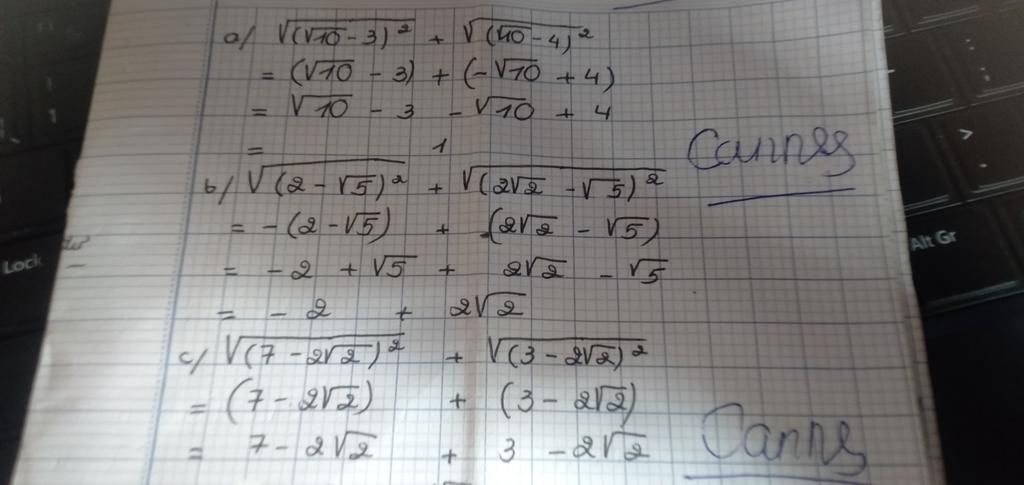 a/ √(√10 - 3)² + √(√10 - 4)²
= (√10 - 3) + (-√10 + 4)
= √10 - 3 - √10 + 4
= 1
Cannes
b/ √(2 - √5)² + √(2√2 - √5)²
= -(2 - √5) + (2√2 - √5)
= - 2 + √5 + 2√2 - √5
= - 2 + 2√2
c/ √(7 - 2√2)² + √(3 - 2√2)²
= (7 - 2√2) + (3 - 2√2)
= 7 - 2√2 + 3 - 2√2
Cannes
Lock
Alt Gr
>